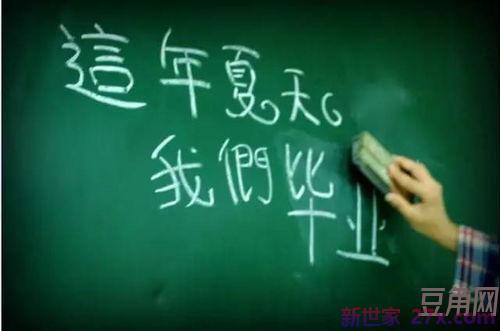 這年夏天。
我們毕业
豆角网
新世家 27x.com